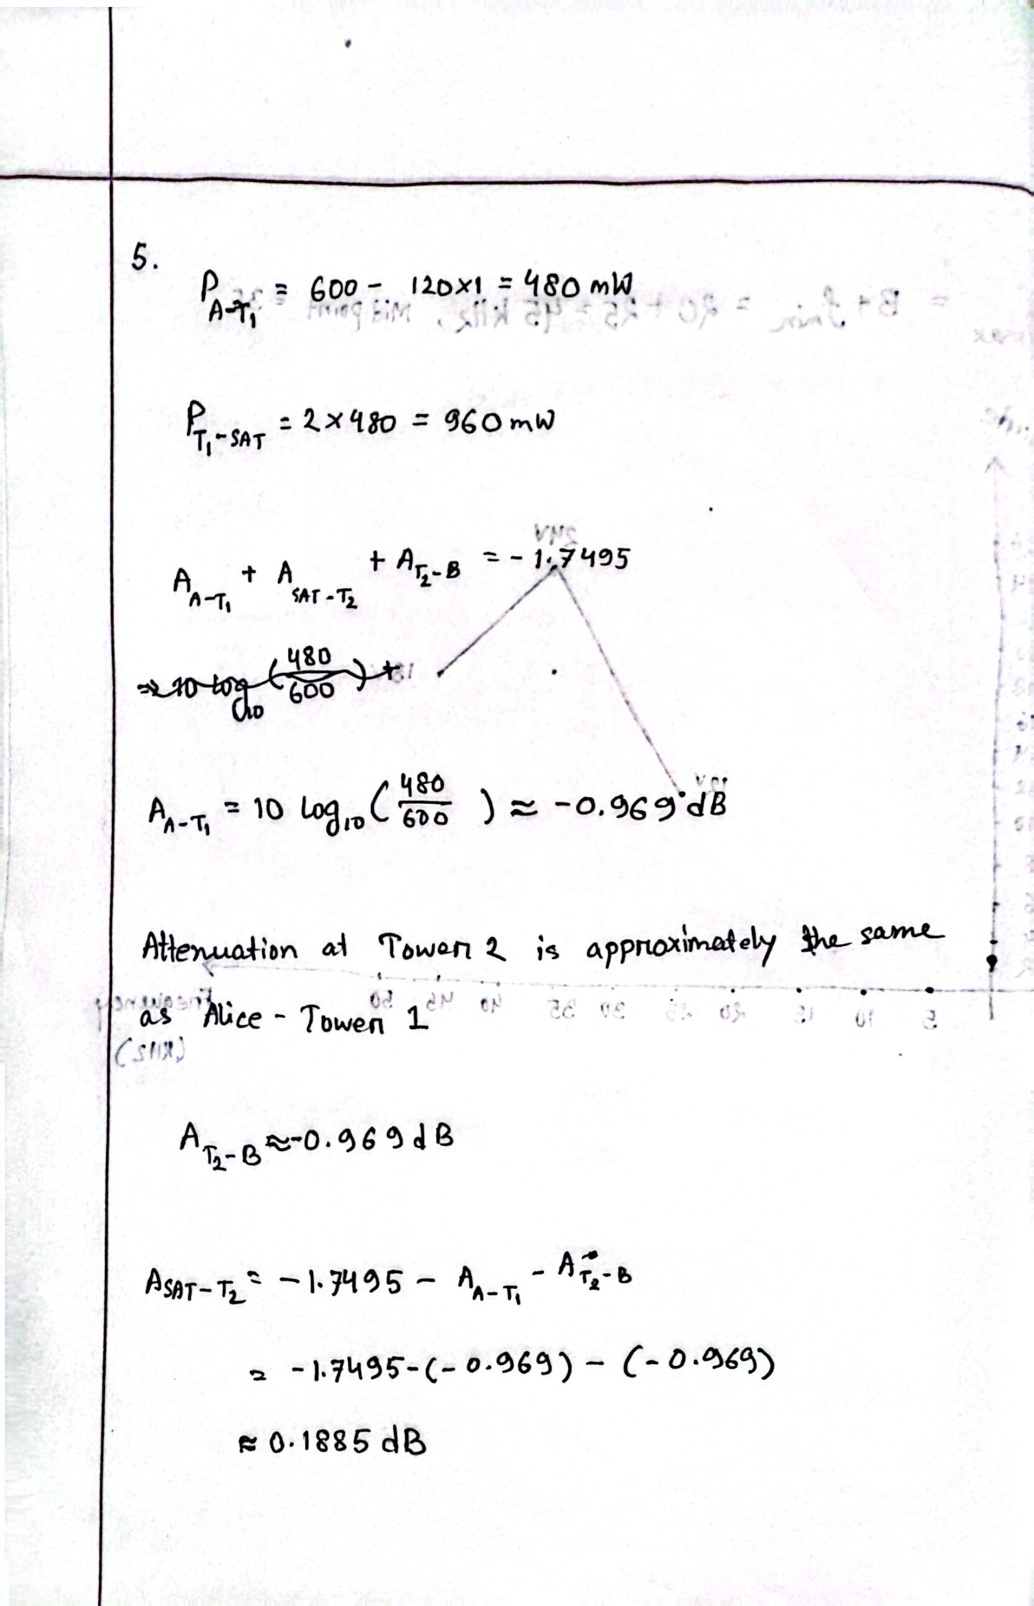 5.
P_{A-T₁} = 600 - 120×1 = 480 mW
P_{T₁-SAT} = 2×480 = 960 mW
A_{A-T₁} + A_{SAT-T₂} + A_{T₂-B} = -1.7495
⇒ 10 log₁₀ (480/600) +
A_{A-T₁} = 10 log₁₀ (480/600) ≈ -0.969 dB
Attenuation at Tower 2 is approximately the same
as Alice - Tower 1
A_{T₂-B} ≈ -0.969 dB
A_{SAT-T₂} = -1.7495 - A_{A-T₁} - A_{T₂-B}
= -1.7495-(-0.969) - (-0.969)
≈ 0.1885 dB